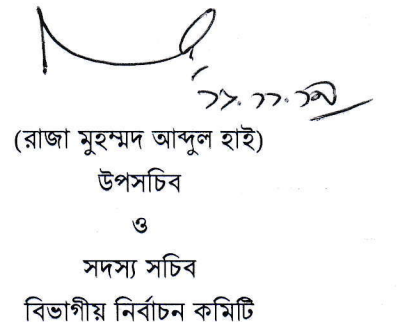 (রাজা মুহম্মদ আব্দুল হাই)
উপসচিব
ও
সদস্য সচিব
বিভাগীয় নির্বাচন কমিটি